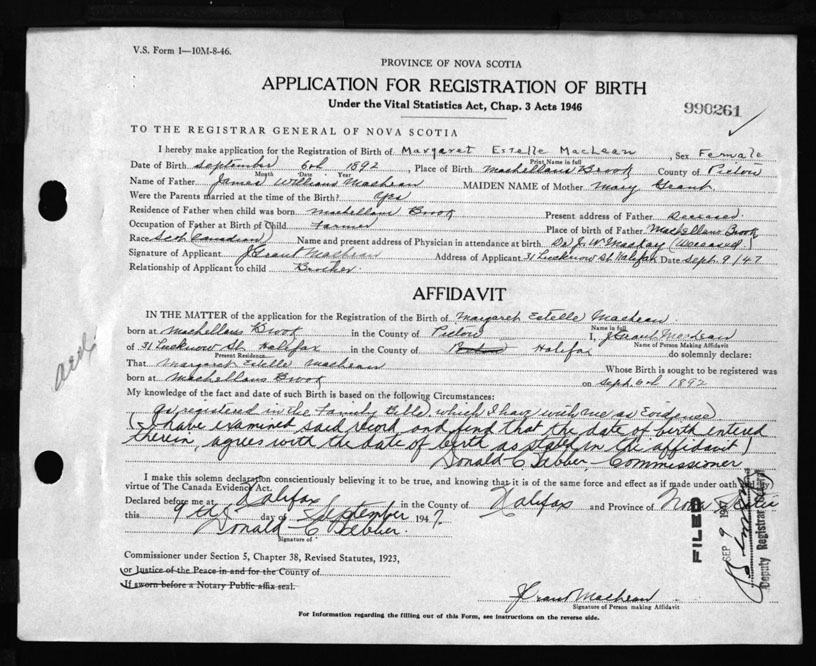 V.S. Form 1—10M-8-46.
PROVINCE OF NOVA SCOTIA
APPLICATION FOR REGISTRATION OF BIRTH
Under the Vital Statistics Act, Chap. 3 Acts 1946
990261
TO THE REGISTRAR GENERAL OF NOVA SCOTIA
I hereby make application for the Registration of Birth of Margaret Estelle MacLean, Sex Female
Print Name in full
Date of Birth September 6th 1892, Place of Birth MacLellans Brook County of Pictou
Month Date Year
Name of Father James William MacLean MAIDEN NAME of Mother Mary Grant
Were the Parents married at the time of Birth? Yes
Residence of Father when child was born MacLellans Brook Present address of Father Deceased.
Occupation of Father at Birth of Child Farmer Place of birth of Father MacLellans Brook
Race Scot Canadian Name and present address of Physician in attendance at birth Dr J. W. MacKay (Deceased.)
Signature of Applicant J Grant MacLean Address of Applicant 31 Lucknow St. Halifax Date Sept. 9/47
Relationship of Applicant to child Brother
AFFIDAVIT
IN THE MATTER of the application for the Registration of the Birth of Margaret Estelle MacLean.
Name in full
born at MacLellans Brook in the County of Pictou I, J Grant MacLean
Name of Person Making Affidavit
of 31 Lucknow St. Halifax in the County of Halifax do solemnly declare:
Present Residence
That Margaret Estelle MacLean Whose Birth is sought to be registered was
born at MacLellans Brook on Sept. 6th 1892
My knowledge of the fact and date of such Birth is based on the following Circumstances:
as registered in the Family Bible, which I have with me as Evidence
(I have examined said record and find that the date of birth entered
therein, agrees with the date of birth as stated in the affidavit)
Donald C. - Commissioner
I make this solemn declaration conscientiously believing it to be true, and knowing that it is of the same force and effect as if made under oath and by
virtue of The Canada Evidence Act.
Declared before me at Halifax in the County of Halifax and Province of Nova Scotia
this 9th day of September 1947.
Donald C.
Signature of
Commissioner under Section 5, Chapter 38, Revised Statutes, 1923,
or Justice of the Peace in and for the County of
If sworn before a Notary Public affix seal.
FILED
SEP 9 1947
Deputy Registrar
J Grant MacLean
Signature of Person making Affidavit
For Information regarding the filling out of this Form, see Instructions on the reverse side.